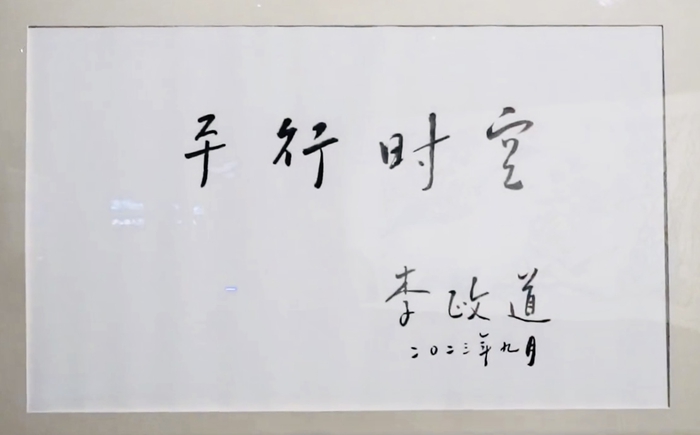 平行时空
李政道
二０二三年九月